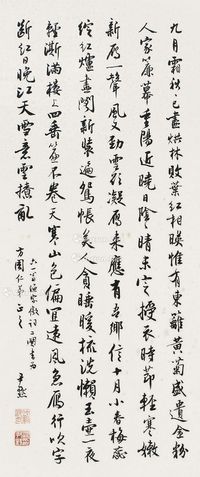 九月霜秋秋已盡烘林敗葉紅相映惟有東籬黃菊盛遺金粉
人家簾幕重陽近曉日陰陰晴未定授衣時節輕寒嫩
新雁一聲風又勁雲欲凝雁來應有吾鄉信十月小春梅蕊
綻紅爐畫閣新裝遍鴛帳美人貪睡暖梳洗懶玉壺一夜
輕澌滿樓上四垂簾不卷天寒山色偏宜遠風急雁行吹字
斷紅日晚江天雪意雲撩亂
六一居士漁家傲詞二闋書為
方園仁弟正之
尹默